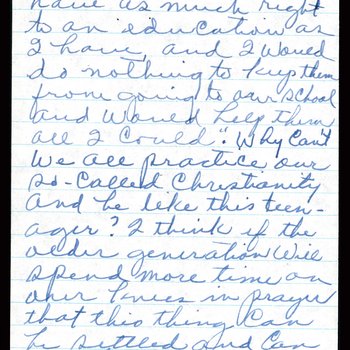 have as much right
to an education as
I have, and I would
do nothing to keep them
from going to our school
and would help them
all I could". Why Can't
we all practice our
so-called Christianity
and be like this teen-
ager? I think if the
older generation will
spend more time on
our knees in prayer
that this thing Can
be settled and Can